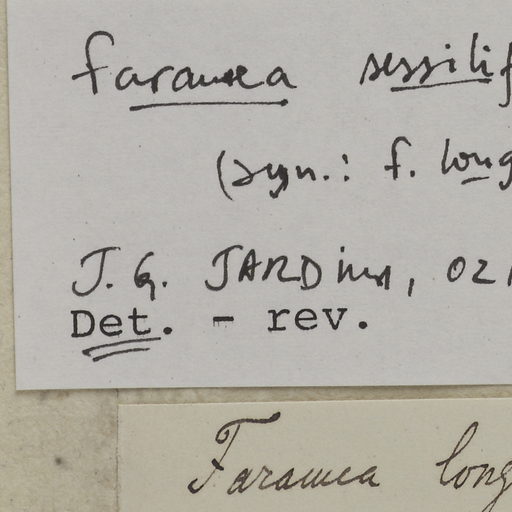 Faramea sessilif
(syn.: F. long
J. G. JARDim, 02
Det. - rev.
Faramea long